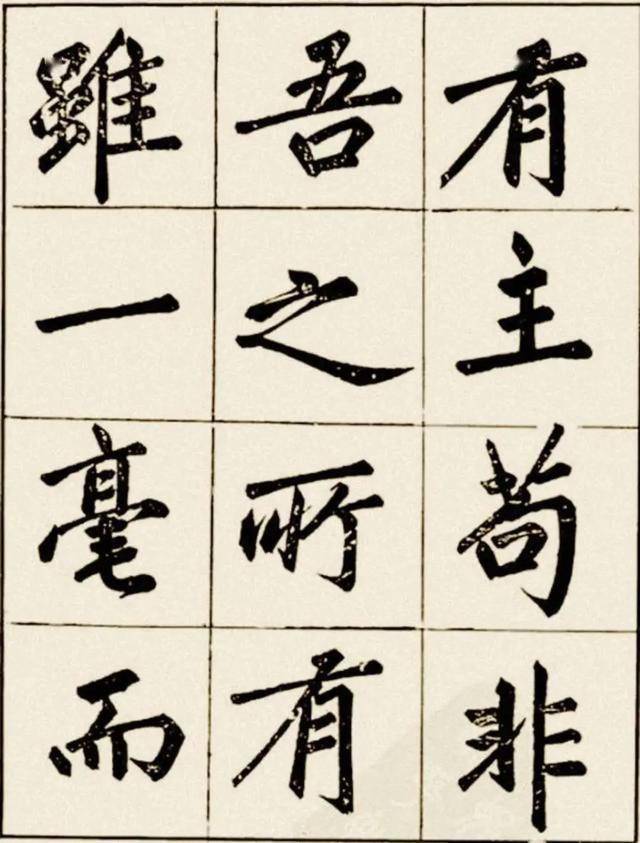 有主苟非
吾之所有
雖一毫而